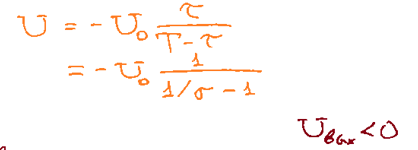 U = -U₀ τ/(T-τ)
= -U₀ 1/(1/σ - 1)
Uвых < 0